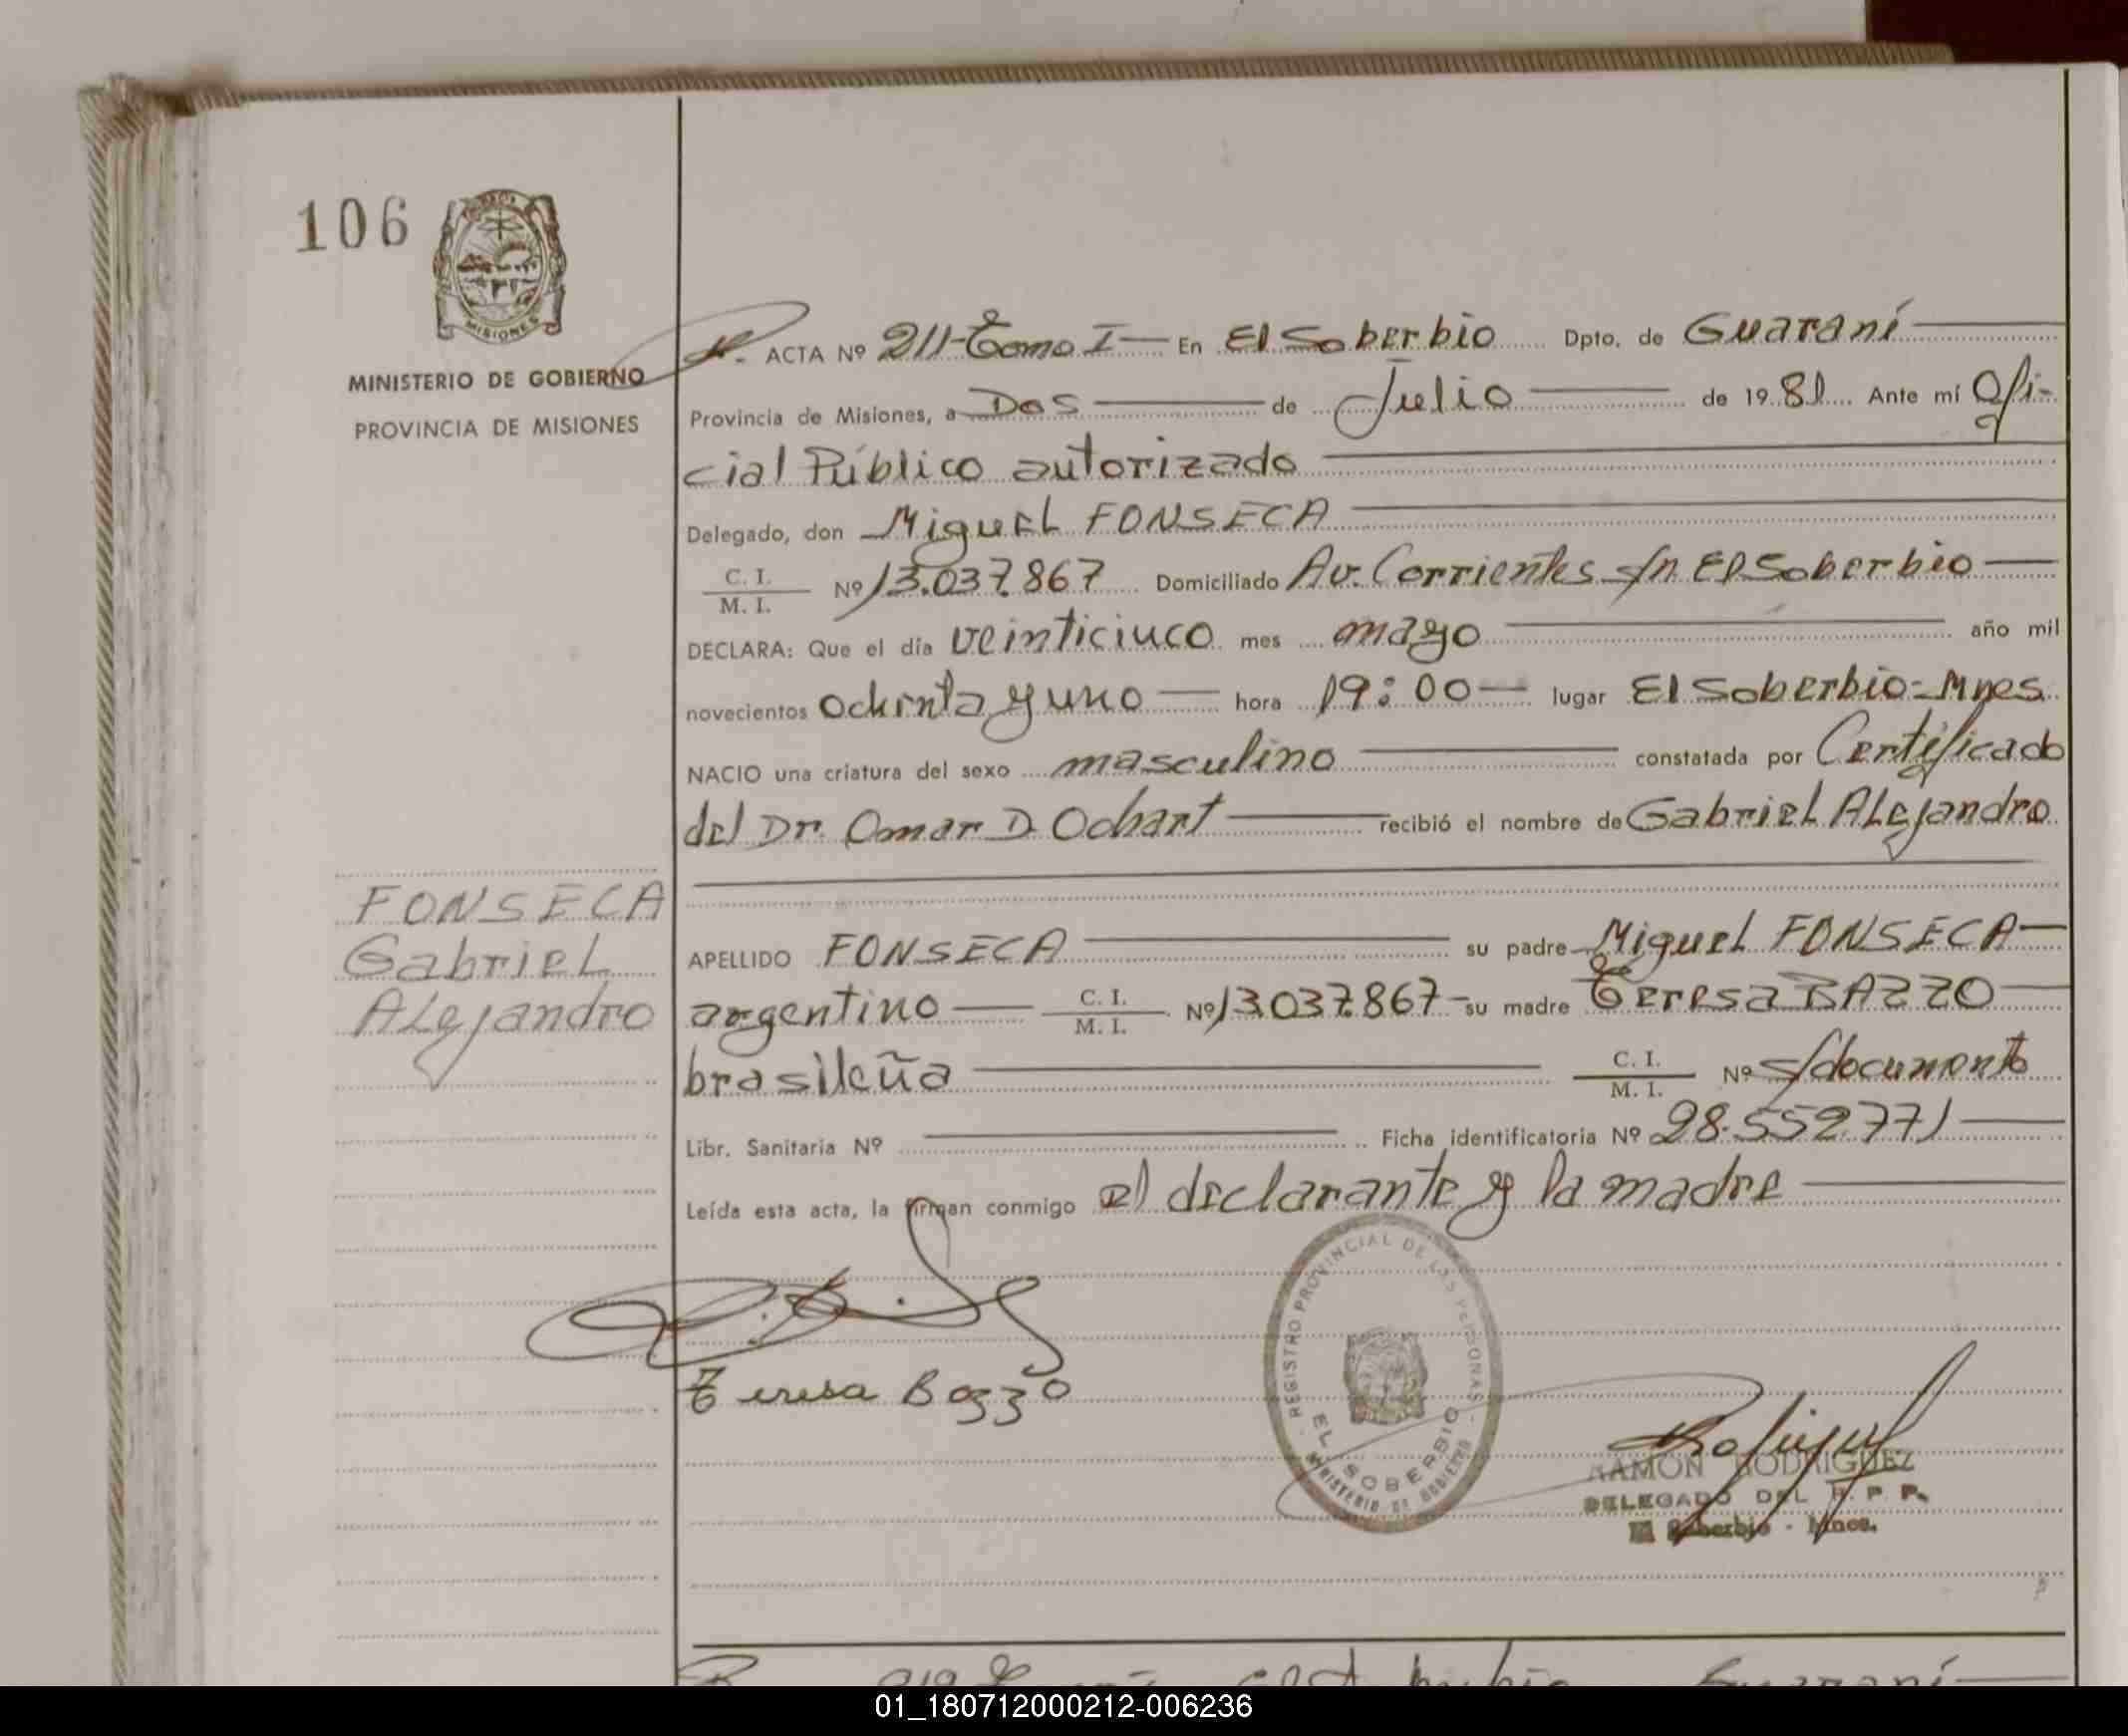 106
MISIONES
MINISTERIO DE GOBIERNO
PROVINCIA DE MISIONES
ACTA Nº 211-Tomo I — En El Soberbio Dpto. de Guaraní
Provincia de Misiones, a Dos de Julio de 1981 Ante mí Ofi-
cial Público autorizado
Delegado, don Miguel FONSECA
C. I.
M. I. Nº 13.037.867 Domiciliado Av. Corrientes s/n El Soberbio
DECLARA: Que el día veinticinco mes mayo año mil
novecientos ochenta y uno hora 19:00 lugar El Soberbio-Mnes.
NACIO una criatura del sexo masculino constatada por Certificado
del Dr. Omar D. Ochart recibió el nombre de Gabriel Alejandro
FONSECA
Gabriel
Alejandro
APELLIDO FONSECA su padre Miguel FONSECA
argentino C. I.
M. I. Nº 13.037.867- su madre Teresa BAZZO
brasileña C. I.
M. I. Nº s/documento
Libr. Sanitaria Nº Ficha identificatoria Nº 28.552.771
Leída esta acta, la firman conmigo el declarante y la madre
Teresa Bazzo
REGISTRO PROVINCIAL DE LAS PERSONAS
EL SOBERBIO
MINISTERIO DE GOBIERNO
RAMON RODRIGUEZ
DELEGADO DEL R. P. P.
El Soberbio - Mnes.
01_180712000212-006236